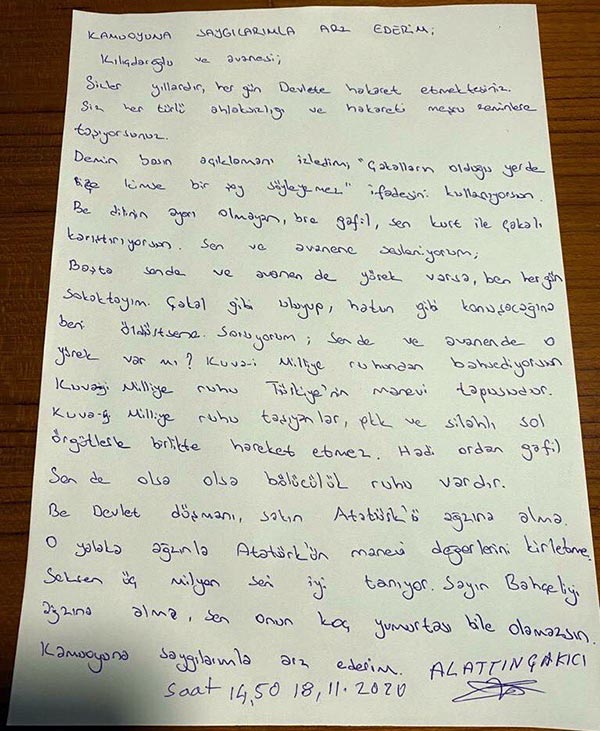 KAMUOYUNA SAYGILARIMLA ARZ EDERİM;
Kılıçdaroğlu ve avanesi;
Sizler yıllardır, her gün Devlete hakaret etmektesiniz.
Siz her türlü ahlaksızlığı ve hakareti meşru zeminlere
taşıyorsunuz.
Demin basın açıklamanı izledim, "Çakalların olduğu yerde
bize kimse bir şey söyleyemez" ifadesini kullanıyorsun.
Be dininin ayarı olmayan, bre gafil, sen kurt ile çakalı
karıştırıyorsun. Sen ve avanene sesleniyorum;
Başta sende ve avanen de yürek varsa, ben her gün
sokaktayım. Çakal gibi uluyup, hatun gibi konuşacağına
beni öldürtsene. Soruyorum; Sende ve avanende o
yürek var mı? Kuva-i Milliye ruhundan bahsediyorsun
Kuvayi Milliye ruhu Türkiye'nin manevi tapusudur.
Kuva-yi Milliye ruhu taşıyanlar, pkk ve silahlı sol
örgütlerle birlikte hareket etmez. Hadi ordan gafil
Sen de olsa olsa bölücülük ruhu vardır.
Be Devlet düşmanı, sakın Atatürk'ü ağzına alma.
O yalaka ağzınla Atatürk'ün manevi değerlerini kirletme.
Seksen üç milyon seni iyi tanıyor. Sayın Bahçeliyi
ağzına alma, sen onun koç yumurtası bile olamazsın.
Kamuoyuna saygılarımla arz ederim. ALATTİN ÇAKICI
saat 14,50 18,11.2020